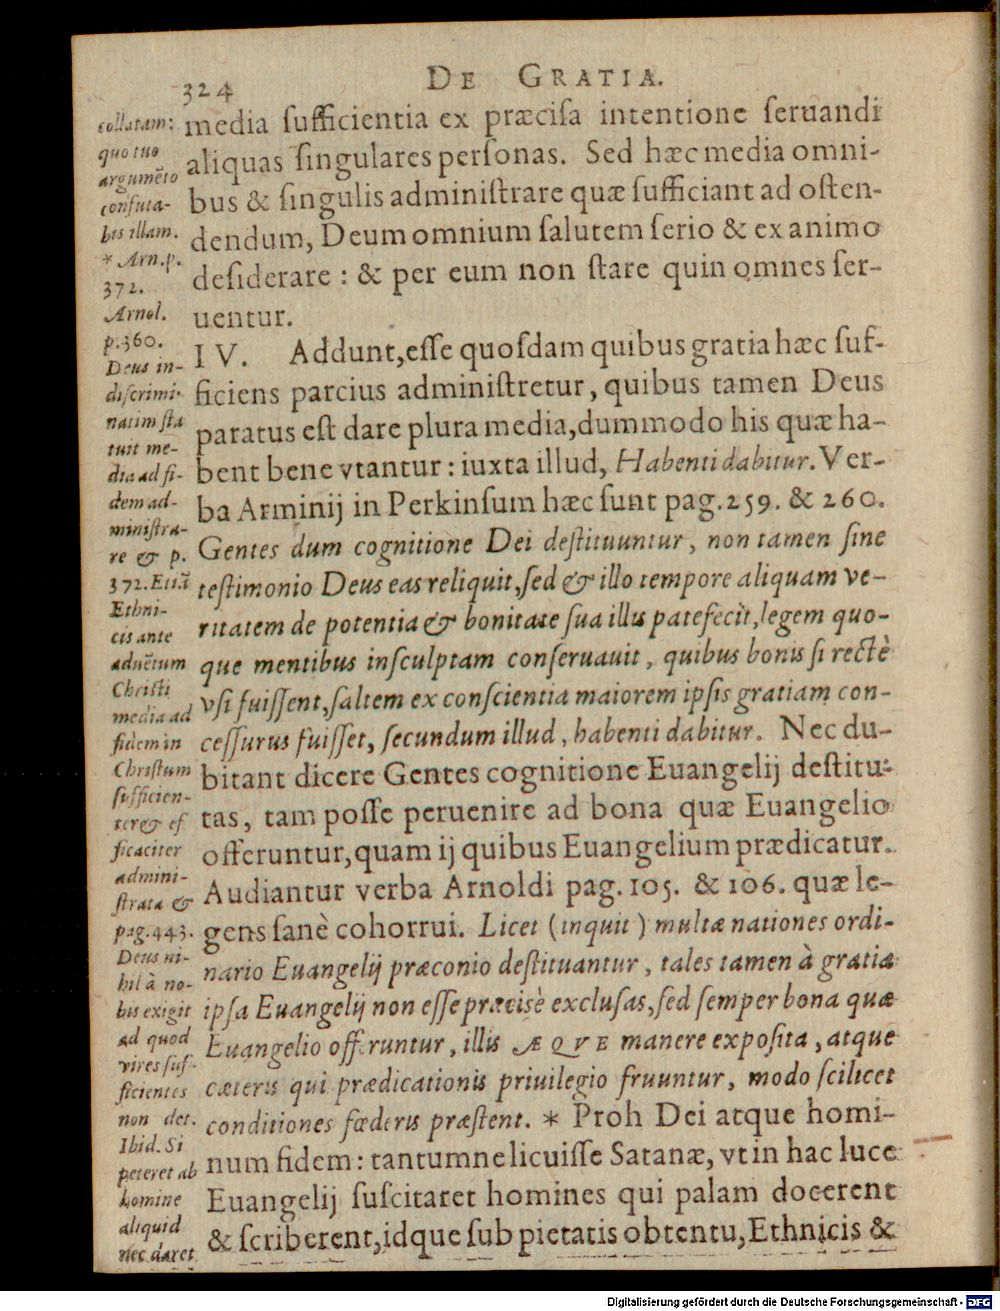 324
DE GRATIA.
media ſufficientia ex præciſa intentione ſeruandi
aliquas ſingulares perſonas. Sed hæc media omni-
bus & ſingulis adminiſtrare quæ ſufficiant ad oſten-
dendum, Deum omnium ſalutem ſerio & ex animo
deſiderare : & per eum non ſtare quin omnes ſer-
uentur.
IV. Addunt, eſſe quoſdam quibus gratia hæc ſuf-
ficiens parcius adminiſtretur, quibus tamen Deus
paratus eſt dare plura media, dummodo his quæ ha-
bent bene vtantur : iuxta illud, Habenti dabitur. Ver-
ba Arminij in Perkinſum hæc ſunt pag. 259. & 260.
Gentes dum cognitione Dei deſtituuntur, non tamen ſine
teſtimonio Deus eas reliquit, ſed & illo tempore aliquam ve-
ritatem de potentia & bonitate ſua illis patefecit, legem quo-
que mentibus inſculptam conſeruauit, quibus bonis ſi rectè
vſi fuiſſent, ſaltem ex conſcientia maiorem ipſis gratiam con-
ceſſurus fuiſſet, ſecundum illud, habenti dabitur. Nec du-
bitant dicere Gentes cognitione Euangelij deſtitu-
tas, tam poſſe peruenire ad bona quæ Euangelio
offeruntur, quam ij quibus Euangelium prædicatur.
Audiantur verba Arnoldi pag. 105. & 106. quæ le-
gens ſanè cohorrui. Licet (inquit) multæ nationes ordi-
nario Euangelij præconio deſtituantur, tales tamen à gratia
ipſa Euangelij non eſſe præcisè excluſas, ſed ſemper bona quæ
Euangelio offeruntur, illis ÆQVE manere expoſita, atque
cæteris qui prædicationis priuilegio fruuntur, modo ſcilicet
conditiones fœderis præſtent. * Proh Dei atque homi-
num fidem : tantumne licuiſſe Satanæ, vt in hac luce
Euangelij ſuſcitaret homines qui palam docerent
& ſcriberent, idque ſub pietatis obtentu, Ethnicis &
collatam:
quo tuo
argumẽto
confuta-
bis illam.
* Arn. p.
372.
Arnol.
p. 360.
Deus in-
diſcrimi-
natim ſta
tuit me-
dia ad fi-
dem ad-
miniſtra-
re & p.
372. Etiã
Ethni-
cis ante
aduẽtum
Chriſti
media ad
fidem in
Chriſtum
ſufficien-
ter & ef
ficaciter
admini-
ſtrata &
pag. 443.
Deus ni-
hil à no-
bis exigit
ad quod
vires ſuf-
ficientes
non det.
Ibid. Si
peteret ab
homine
aliquid
nec daret
Digitalisierung gefördert durch die Deutsche Forschungsgemeinschaft - DFG